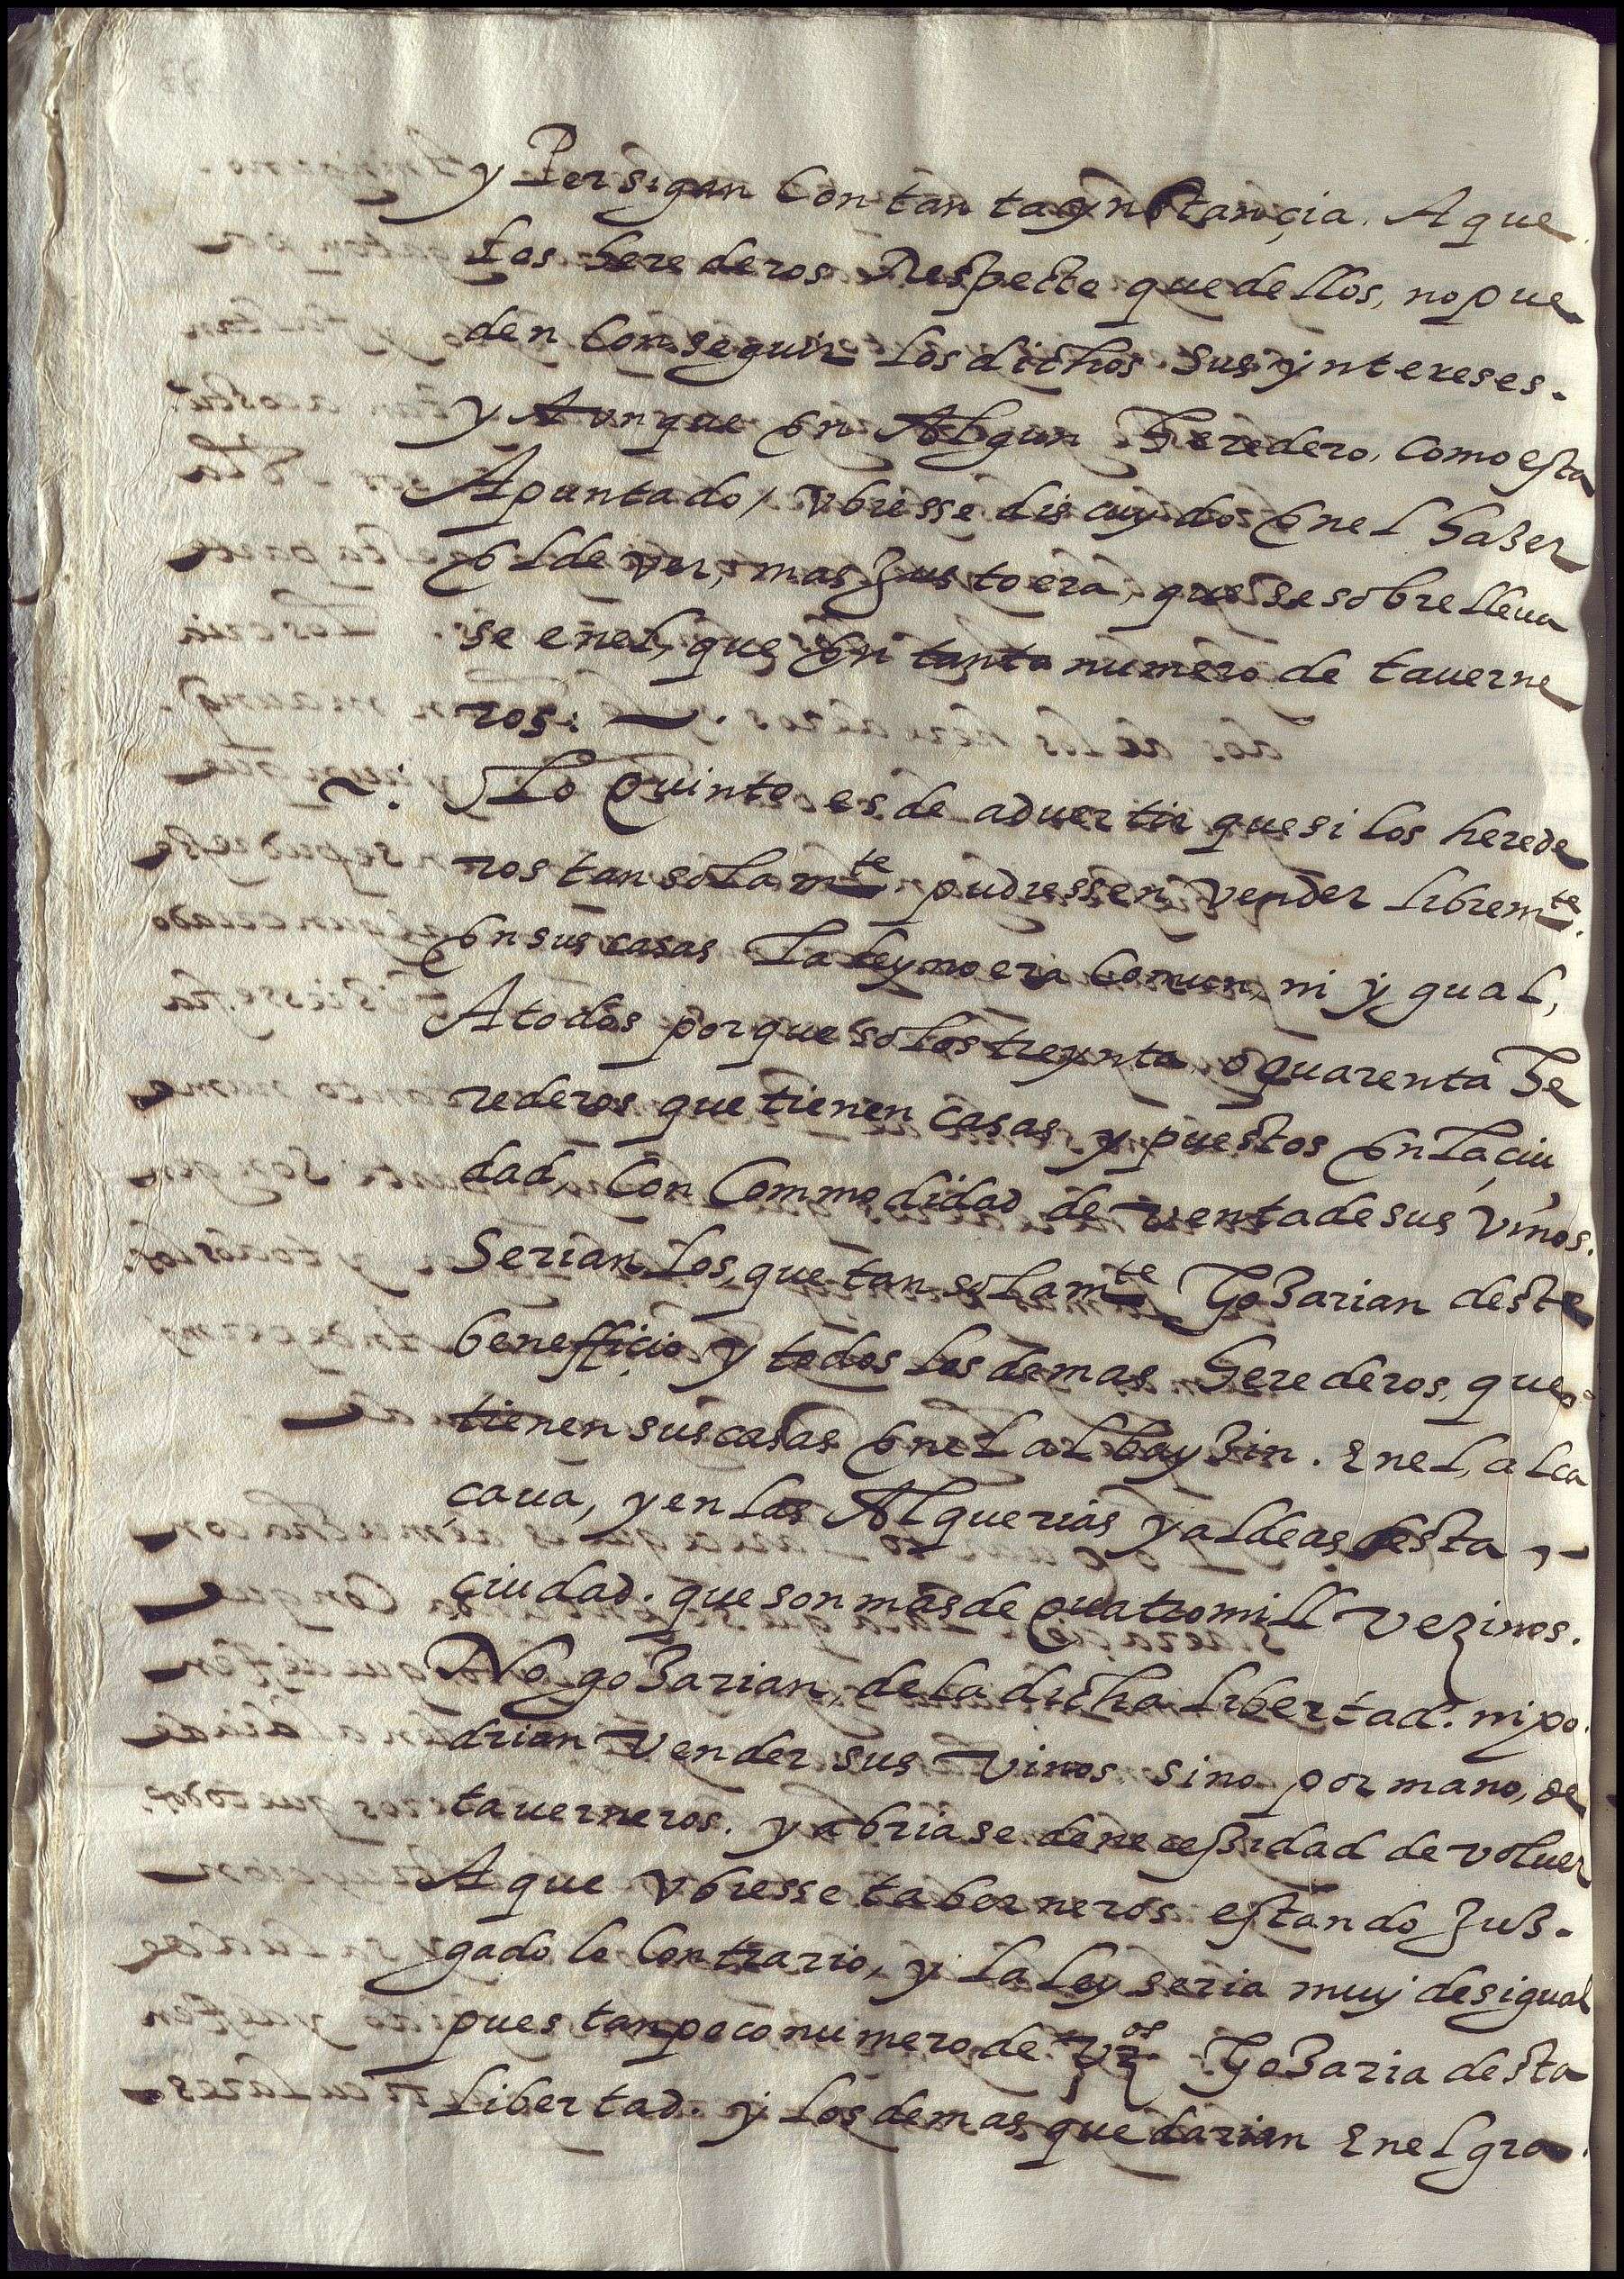 y Persigan Con tan ta ynstançia. A que
los herederos Respecto que dellos, no pue
den Conseguir los dichos sus yntereses.
y Aunque en Algun heredero, como esta
Apuntado / vbiesse discuydo en el hazer
el dever, mas Justo era, que se sobre lleua
se en el, que en tanto numero de tauerne
ros. ~.
~. Lo quinto es de advertir que si los herede
ros tan solamte pudiessen vender libremte.
en sus casas la ley no era Comun, ni ygual,
A todos porque solos treynta, o quarenta he
rederos que tienen casas y puestos en la çiu
dad, Con Commodidad de venta de sus vinos.
Serian los, que tan solamte Gozarian deste
benefficio y todos los demas herederos, que
tienen sus casas en el albayzin. En el, alca
çaua, y en las Alquerias y aldeas desta ~
çiudad. que son mas de quatro mill vezinos.
No gozarian, de la dicha libertad. ni po
drian vender sus vinos sino por mano, de
tauerneros. y abriase de necessidad de voluer
A que vbiesse taberneros estando Juz-
gado lo Contrario, y la ley seria muy desigual
pues tan poco numero de vzos Gozaria desta
libertad. y los demas quedarian En el gra